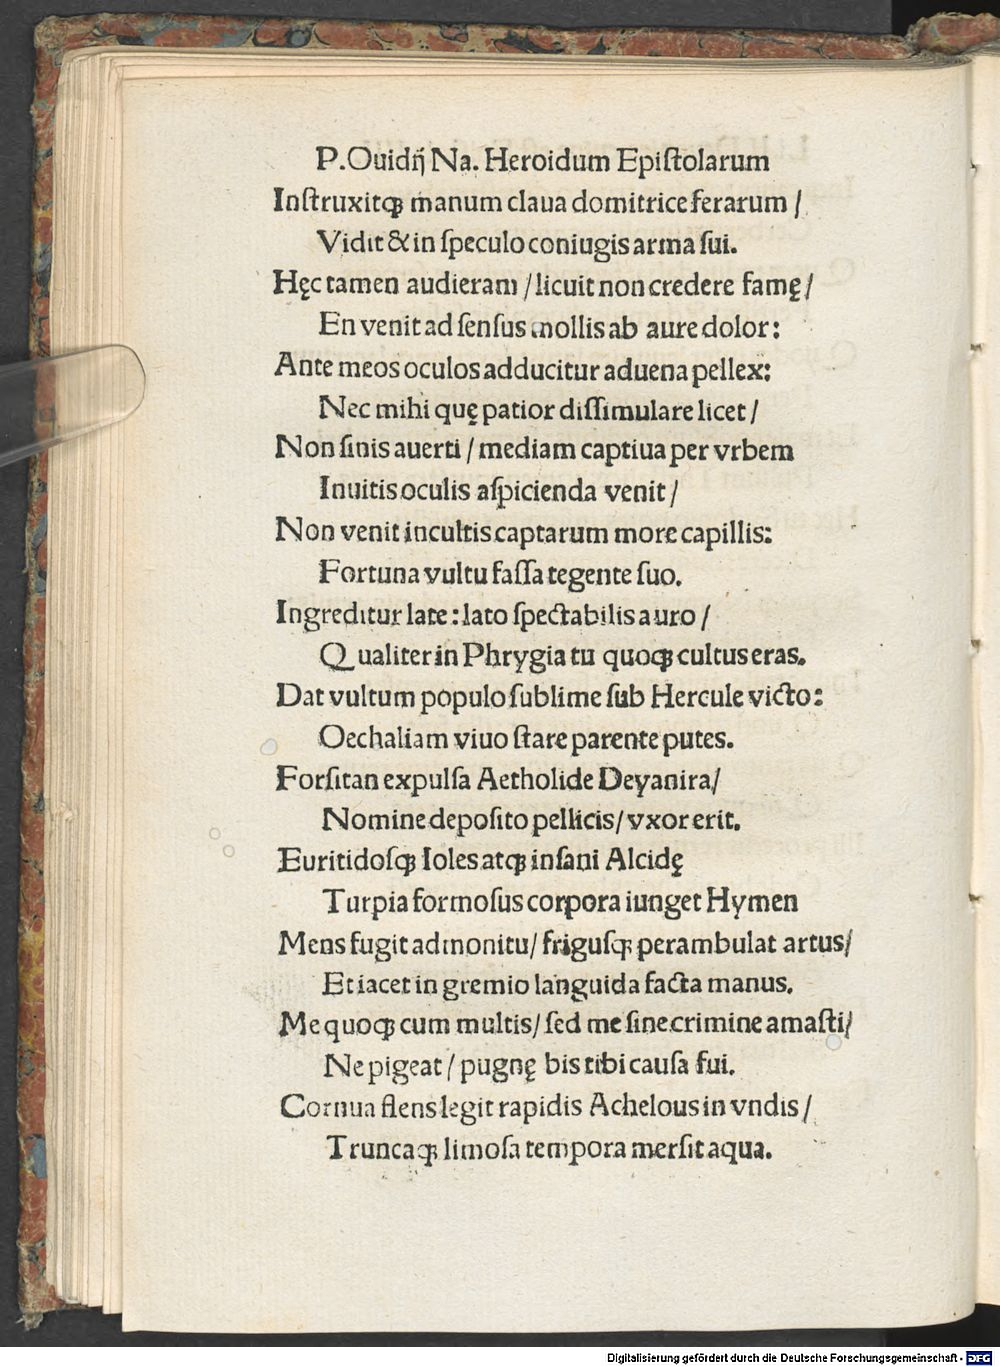 P.Ouidĳ Na. Heroidum Epiſtolarum
Inſtruxitqꝫ manum claua domitrice ferarum /
Vidit & in ſpeculo coniugis arma ſui.
Hęc tamen audieram / licuit non credere famę /
En venit ad ſenſus mollis ab aure dolor:
Ante meos oculos adducitur aduena pellex:
Nec mihi quę patior diſſimulare licet /
Non ſinis auerti / mediam captiua per vrbem
Inuitis oculis aſpicienda venit /
Non venit incultis captarum more capillis:
Fortuna vultu faſſa tegente ſuo.
Ingreditur late: lato ſpectabilis auro /
Qualiter in Phrygia tu quoqꝫ cultus eras.
Dat vultum populo ſublime ſub Hercule victo:
Oechaliam viuo ſtare parente putes.
Forſitan expulſa Aetholide Deyanira/
Nomine depoſito pellicis/ vxor erit.
Euritidoſqꝫ Ioles atqꝫ inſani Alcidę
Turpia formoſus corpora iunget Hymen
Mens fugit admonitu/ friguſqꝫ perambulat artus/
Et iacet in gremio languida facta manus.
Me quoqꝫ cum multis/ ſed me ſine crimine amaſti/
Ne pigeat / pugnę bis tibi cauſa fui.
Cornua flens legit rapidis Achelous in vndis /
Truncaqꝫ limoſa tempora merſit aqua.
Digitalisierung gefördert durch die Deutsche Forschungsgemeinschaft - DFG